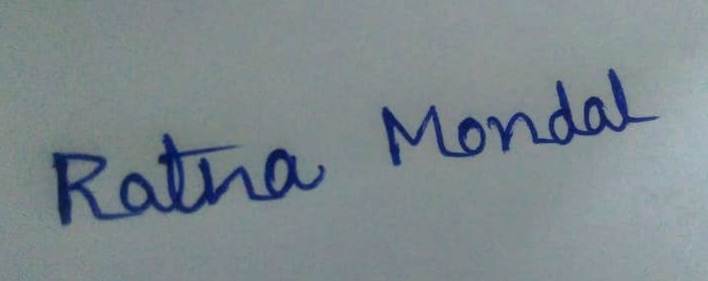 Ratna Mondal